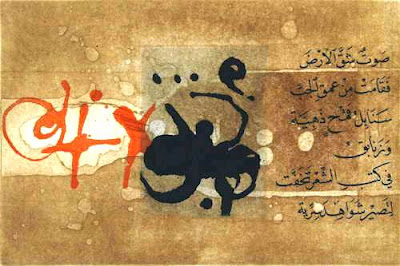 صَوتٌ شَقَّ الأَرضَ
فَقَامَتْ مِنْ عُمقِ الجُبّ
سَنابِلُ قَمْحٍ ذَهَبِيَّة
وزَنابِق
في كتبِ الشِّعْرِ تخَفَّت
لِتَصيرَ شَواهِدَ سِرّية